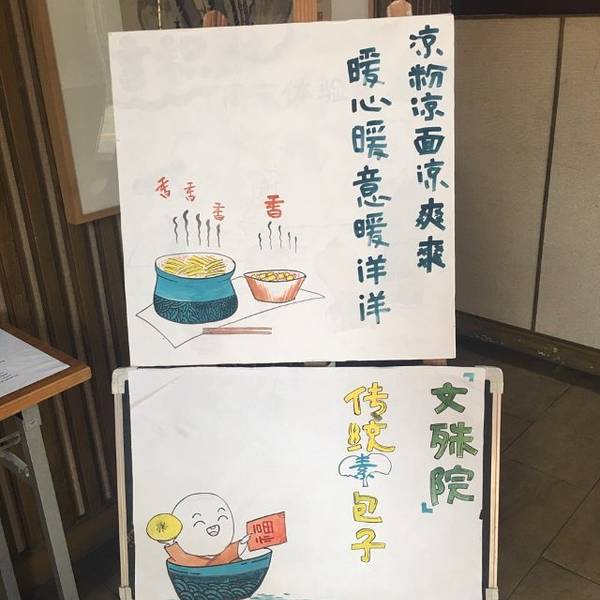 凉粉凉面凉爽爽
暖心暖意暖洋洋
香
香
香
香
「文殊院」
传统素包子
福